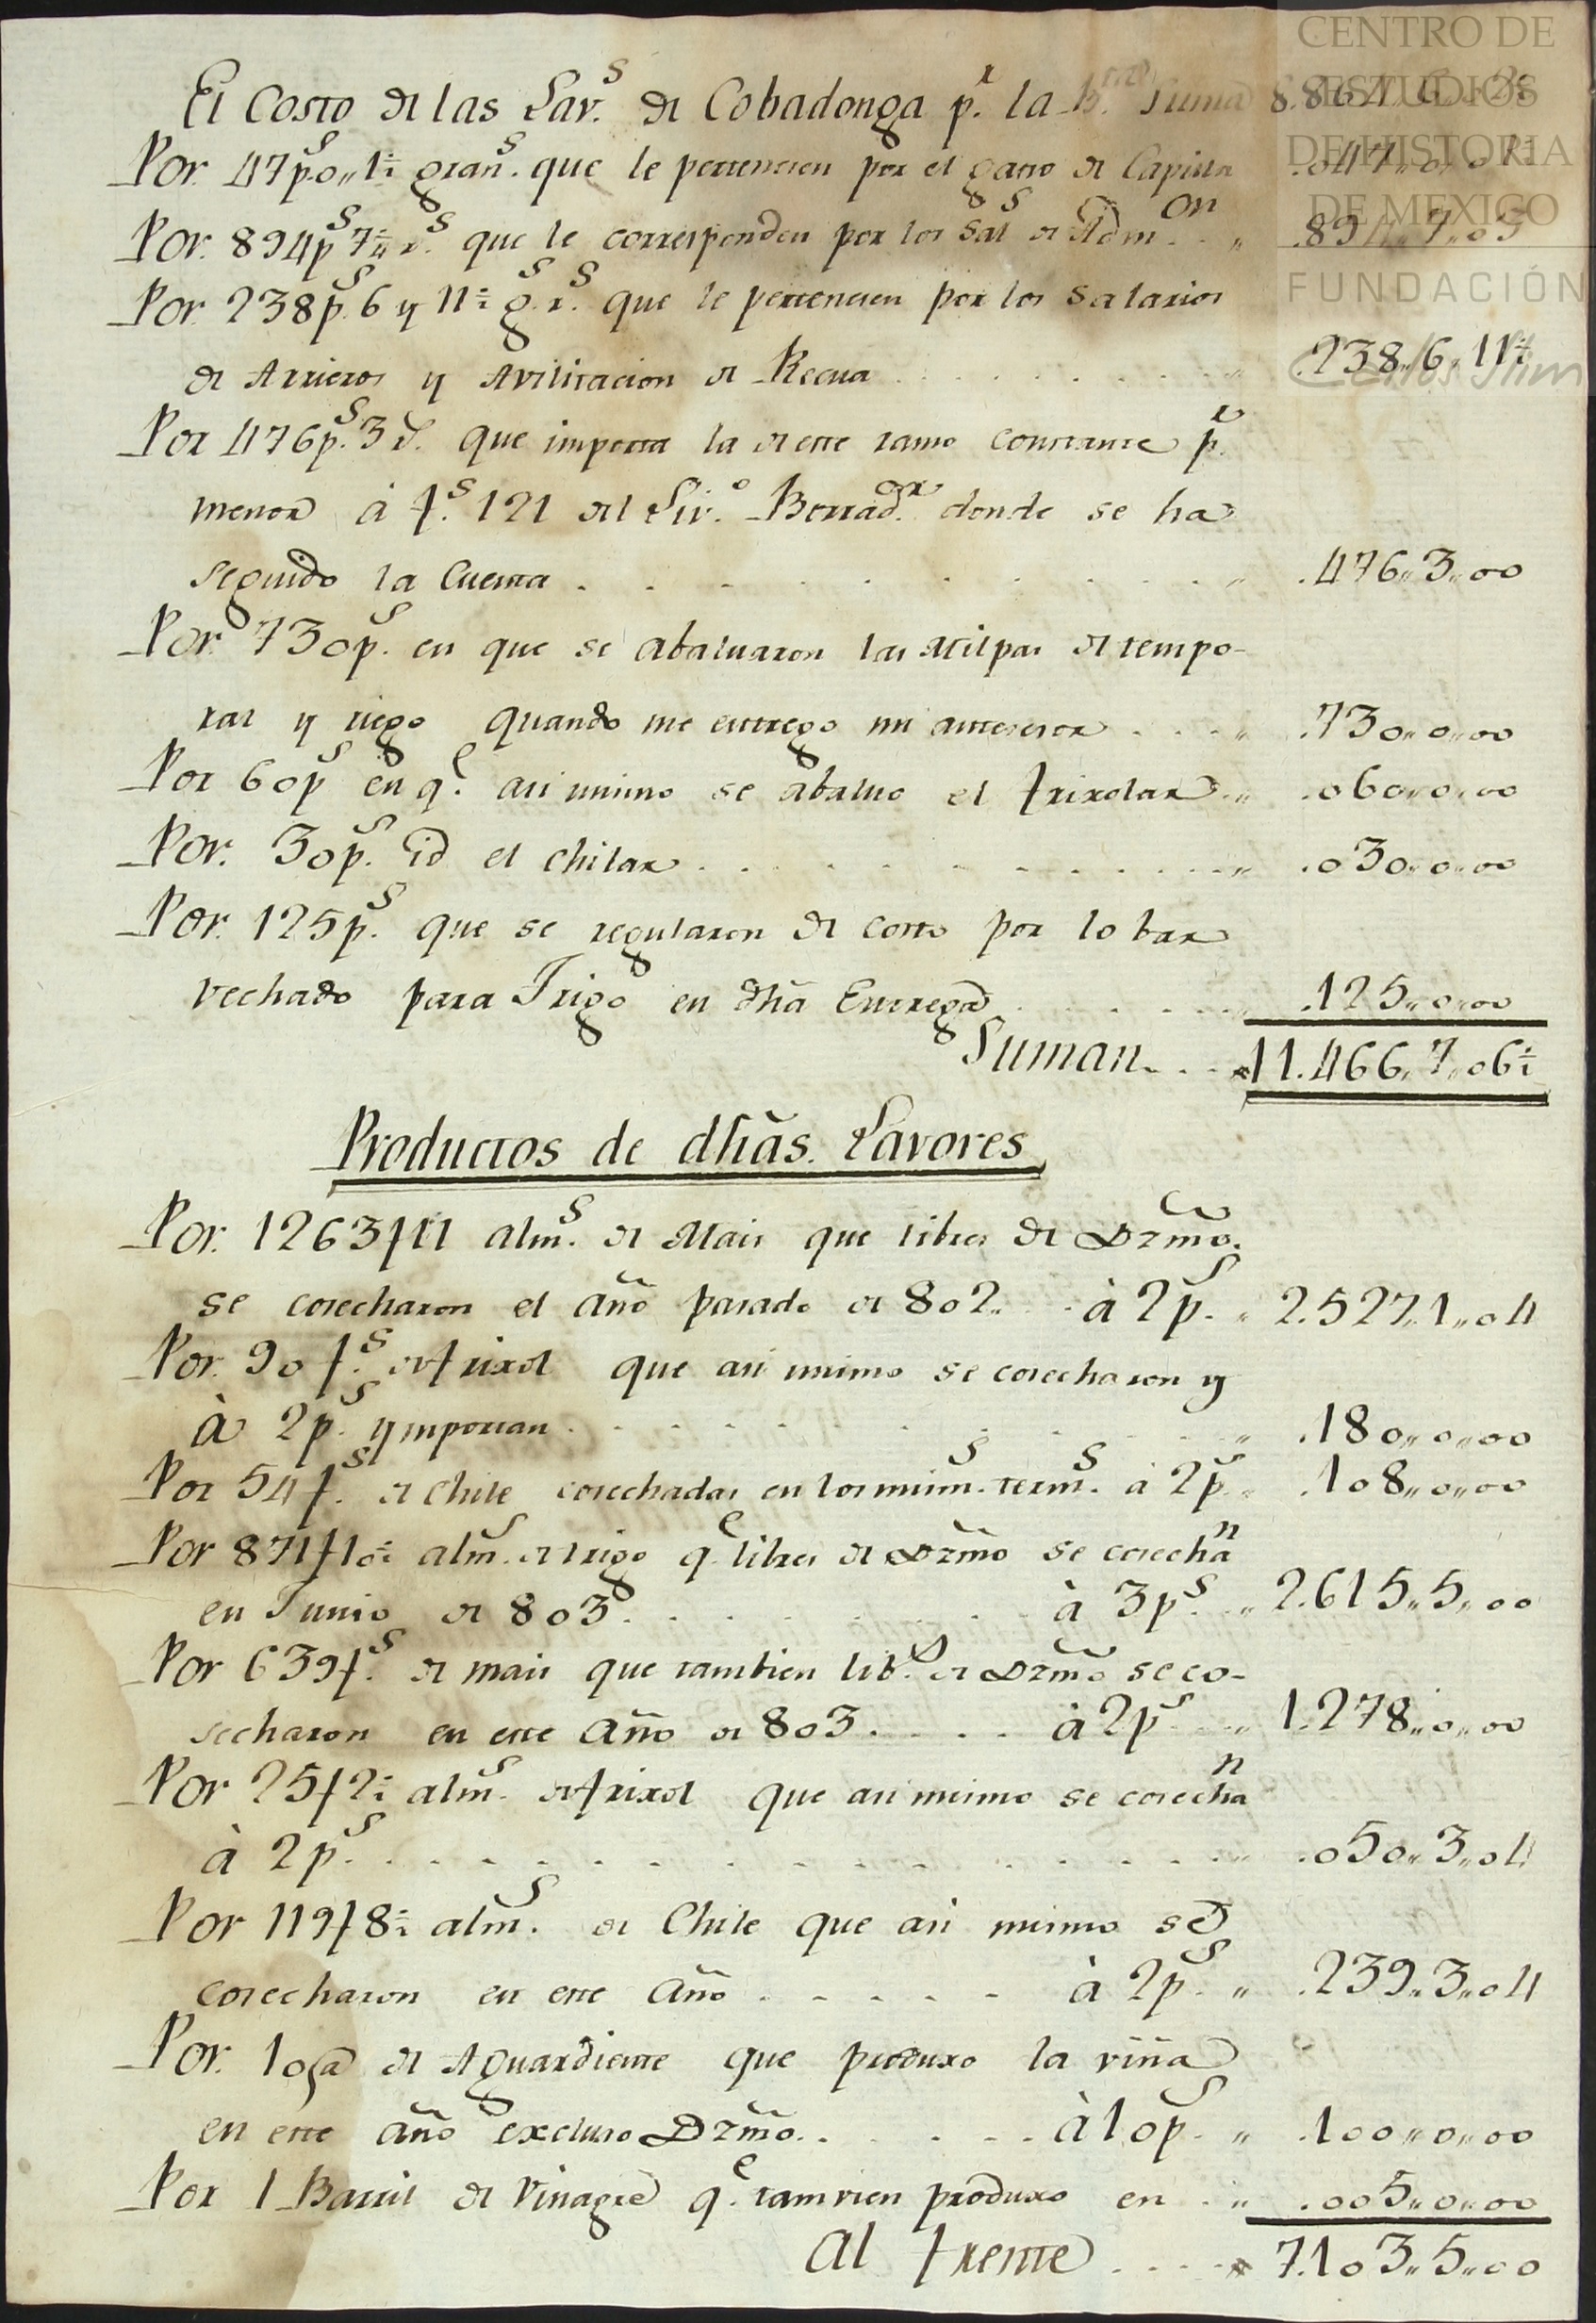 El Costo de las Lav.s de Cobadonga p.r la h.ta Suma 8.864
CENTRO DE
ESTUDIOS
DE HISTORIA
DE MEXICO
FUNDACIÓN
Carlos Slim
Por. 47p.s o,, 1½ gran.s que le pertenecen por el gasto de Capilla .047,,0,,01½
Por. 894p.s 7 r.s que le corresponden por los Sal.s de Adm.on ,, .894,,7,,09
Por 238p.s 6 y 11½ g.r.s que le pertenecen por los Salarios
de Arrieros y Avilitacion de Recua . . . ,, .238,,6,,11½
Por 476p.s 3 r. que importa la de este ramo constante p.r
menor à f.s 121 del Liv.o Borrad.or donde se ha
seguido la Cuenta . . . ,, .476,,3,,00
Por 730p.s en que se abaluaron las Milpas de tempo-
ral y riego quando me entrego mi antesesor . . . ,, .730,,0,,00
Por 60p.s en q.e asi mismo se abaluo el frixolar ,, .060,,0,,00
Por. 30p.s id el chilar . . . ,, .030,,0,,00
Por. 125p.s que se regularon de costo por lo bar
vechado para Trigo en dha Entrega . . . ,, .125,,0,,00
Suman . . . 11.466,,7,,06½
Productos de dhas. Lavores
Por. 1263f11 alm.s de Mais que libres de Dzmo.
se cosecharon el año pasado de 802 . . à 2p.s ,, 2.527,,1,,04
Por. 90 f.s de frixol que asi mismo se cosecharon y
à 2p.s ymportan . . . ,, .180,,0,,00
Por 54f.s de Chile cosechadas en los mism.s term.s à 2p.s ,, .108,,0,,00
Por 871f10½ alm.s de trigo q.e libres de Dzmo se cosecha.n
en Junio de 803 . . . à 3p.s ,, 2.615,,5,,00
Por 639f.s de mais que tambien lib.s de Dzmo se co-
secharon en este Año de 803 . . . . à 2p.s ,, 1.278,,0,,00
Por 25f2½ alm.s de frixol que asi mismo se cosecha.n
à 2p.s . . . ,, .050,,3,,04
Por 119f8½ alm.s de Chile que asi mismo se
cosecharon en este Año . . . à 2p.s ,, .239,,3,,04
Por. 10@ de Aguardiente que produxo la viña
en este año excluso Dzmo. . . . à 10p.s ,, .100,,0,,00
Por 1 Barril de Vinagre q.e tamvien produxo en . ,, .005,,0,,00
Al frente . . . 7.103,,5,,00